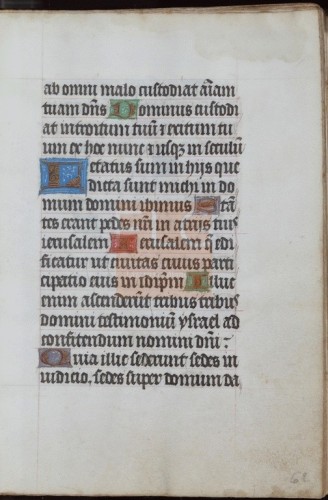 ab omni malo custodiat a͞iam
tuam dn͞s Dominus custodi
at introitum tuu͞ ⁊ exitum tu
um ex hoc nunc ⁊ usq͛ in seculu͞
Letatus sum in hijs que
dicta sunt michi in do
mum domini ibimus Sta͞
tes erant pedes nr͞i in atrijs tuis
ierusalem Ierusalem q͞ edi
ficatur ut civitas cuius parti
cipatio eius in idip͞m Illuc
enim ascenderu͞t tribus tribus
domini testimoniu͞ ysrael ad
confitendum nomini dn͞i :
Quia illic sederunt sedes in
iudicio. sedes super domum da